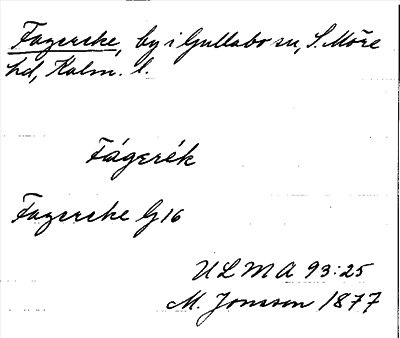 Fagereke, by i Gullabo sn, S. Möre
hd, Kalm. l.
Fágerék
Fagereke G16
ULMA 93:25
M. Jonsson 1877